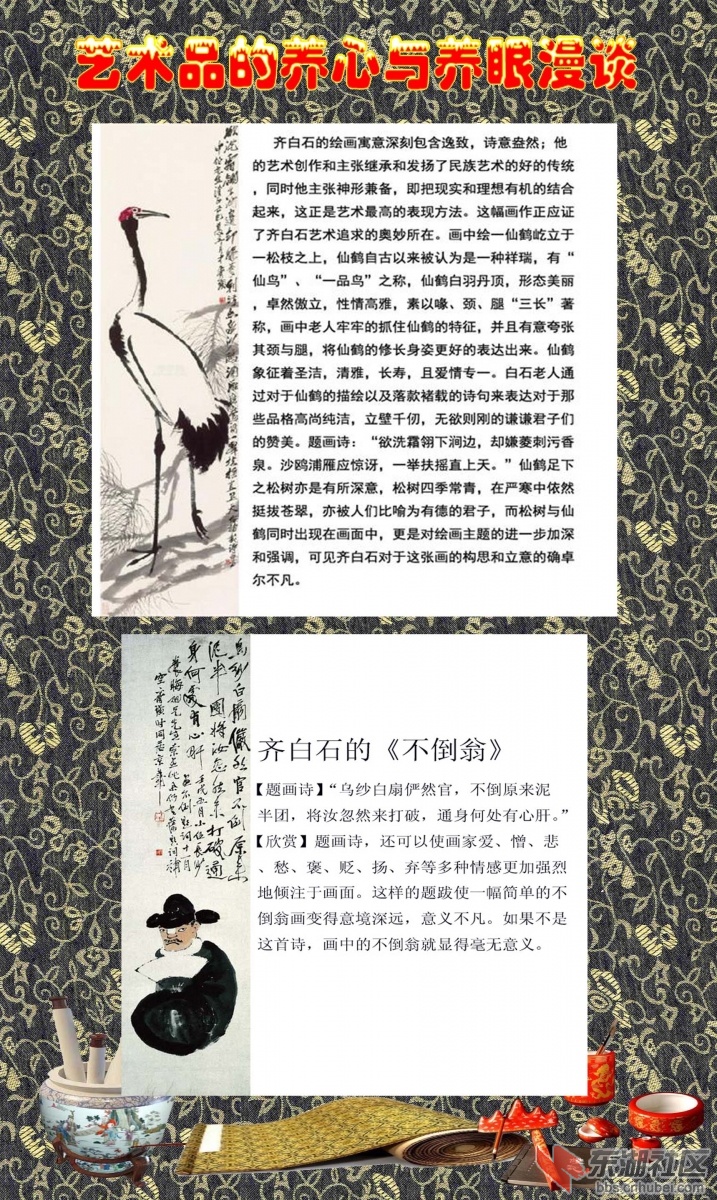 艺术品的养心与养眼漫谈
齐白石的绘画寓意深刻包含逸致，诗意盎然；他
的艺术创作和主张继承和发扬了民族艺术的好的传统
，同时他主张神形兼备，即把现实和理想有机的结合
起来，这正是艺术最高的表现方法。这幅画作正应证
了齐白石艺术追求的奥妙所在。画中绘一仙鹤屹立于
一松枝之上，仙鹤自古以来被认为是一种祥瑞，有“
仙鸟”、“一品鸟”之称，仙鹤白羽丹顶，形态美丽
，卓然傲立，性情高雅，素以喙、颈、腿“三长”著
称，画中老人牢牢的抓住仙鹤的特征，并且有意夸张
其颈与腿，将仙鹤的修长身姿更好的表达出来。仙鹤
象征着圣洁，清雅，长寿，且爱情专一。白石老人通
过对于仙鹤的描绘以及落款褚载的诗句来表达对于那
些品格高尚纯洁，立壁千仞，无欲则刚的谦谦君子们
的赞美。题画诗：“欲洗霜翎下涧边，却嫌菱刺污香
泉。沙鸥浦雁应惊讶，一举扶摇直上天。”仙鹤足下
之松树亦是有所深意，松树四季常青，在严寒中依然
挺拔苍翠，亦被人们比喻为有德的君子，而松树与仙
鹤同时出现在画面中，更是对绘画主题的进一步加深
和强调，可见齐白石对于这张画的构思和立意的确卓
尔不凡。
乌纱白扇俨然官不倒原来
泥半团将汝忽然来打破通
身何处有心肝
齐白石的《不倒翁》
【题画诗】“乌纱白扇俨然官，不倒原来泥
半团，将汝忽然来打破，通身何处有心肝。”
【欣赏】题画诗，还可以使画家爱、憎、悲
、愁、褒、贬、扬、弃等多种情感更加强烈
地倾注于画面。这样的题跋使一幅简单的不
倒翁画变得意境深远，意义不凡。如果不是
这首诗，画中的不倒翁就显得毫无意义。
东湖社区
bbs.cnhubei.com